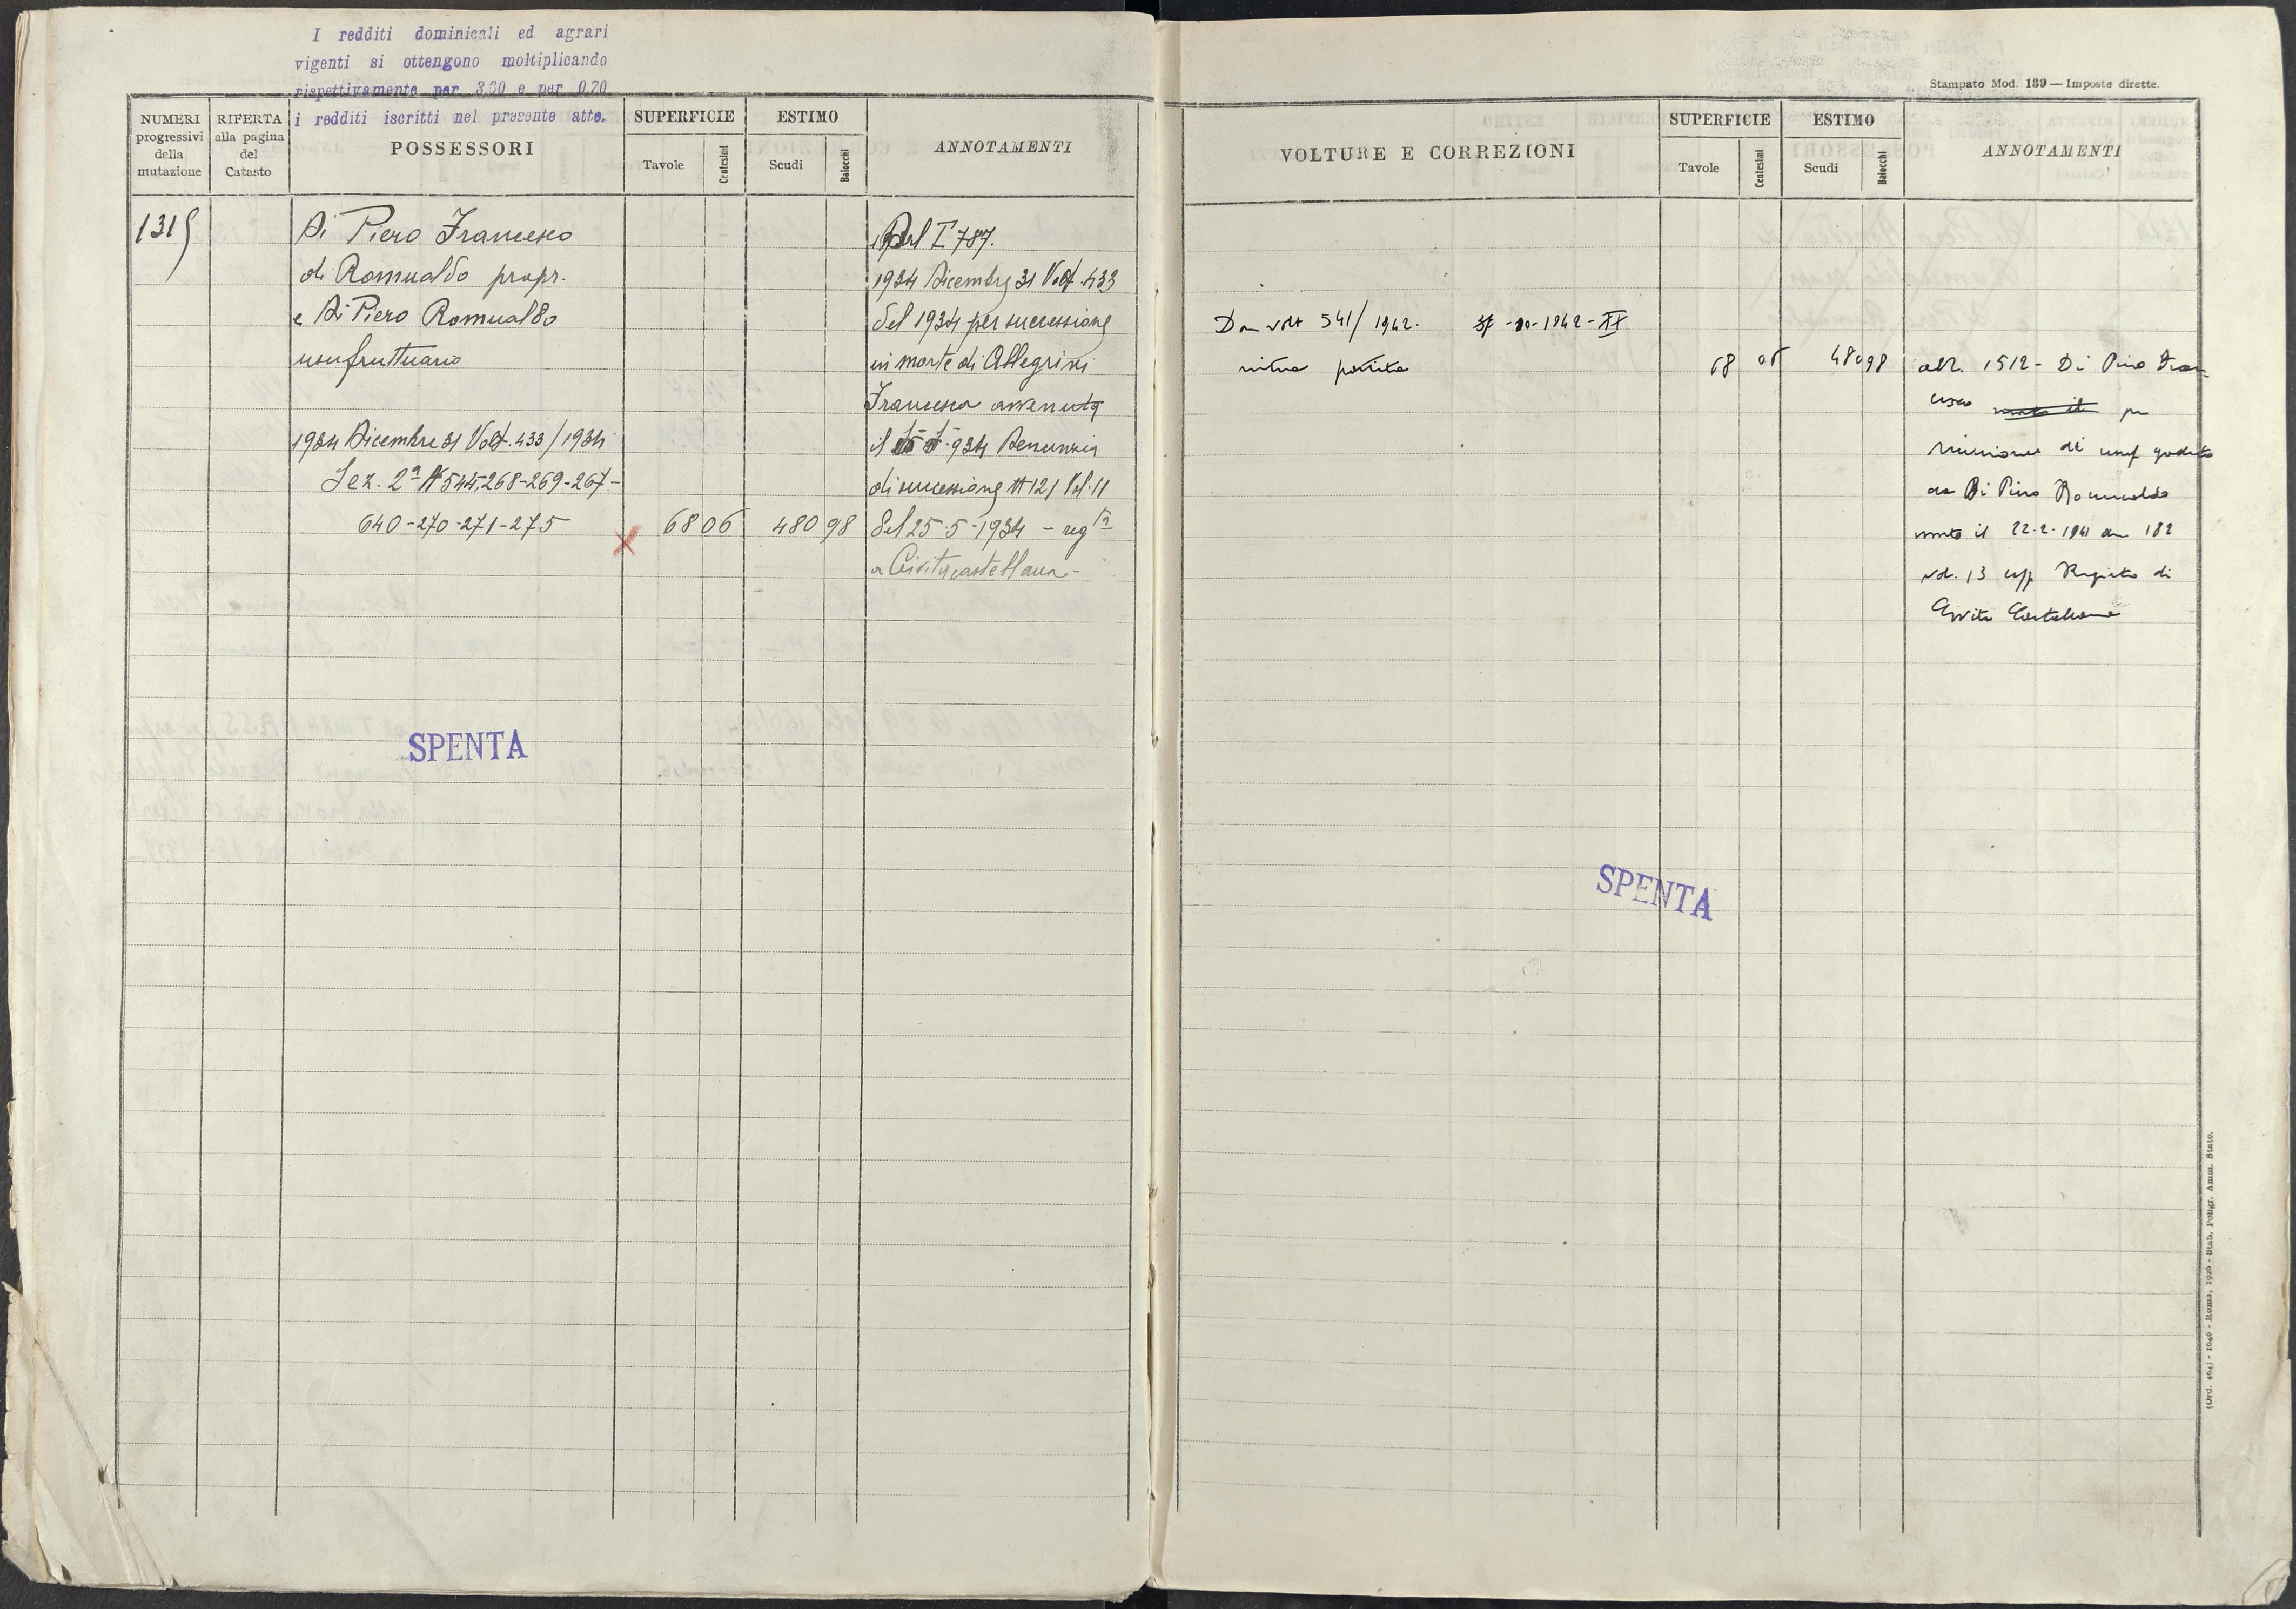 I redditi dominicali ed agrari
vigenti si ottengono moltiplicando
rispettivamente per 3,00 e per 0,70
i redditi iscritti nel presente atto.
NUMERI
progressivi
della
mutazione
RIFERTA
alla pagina
del
Catasto
POSSESSORI
SUPERFICIE
Tavole
Centesimi
ESTIMO
Scudi
Baiocchi
ANNOTAMENTI
1315
Di Piero Francesco
di Romualdo propr.
e Di Piero Romualdo
usufruttuario
1934 Dicembre 31 Volt. 433/1934
Sez. 2ª N 544,268-269-267-
640-270-271-275
68 06
480 98
Dal I 787.
1934 Dicembre 31 Volt 433
del 1934 per successione
in morte di Allegrini
Francesca avvenuta
il 934 Denunzia
di successione N 121 Vol. 11
del 25-5-1934 - regta
a Civitacastellana-
SPENTA
Stampato Mod. 139 — Imposte dirette.
VOLTURE E CORREZIONI
SUPERFICIE
Tavole
Centesimi
ESTIMO
Scudi
Baiocchi
ANNOTAMENTI
Da volt 541/1942. -10-1942-XX
intera partita
68 06
480 98
all. 1512 - Di Piero Fran
cesco per
riunione di usuf goduto
da Di Piero Romualdo
morto il 22-2-1941 den 182
vol. 13 uff Registro di
Civita Castellana
SPENTA
(Ord. 404) - 1640 - Roma, 1926 - Stab. Poligr. Amm. Stato.